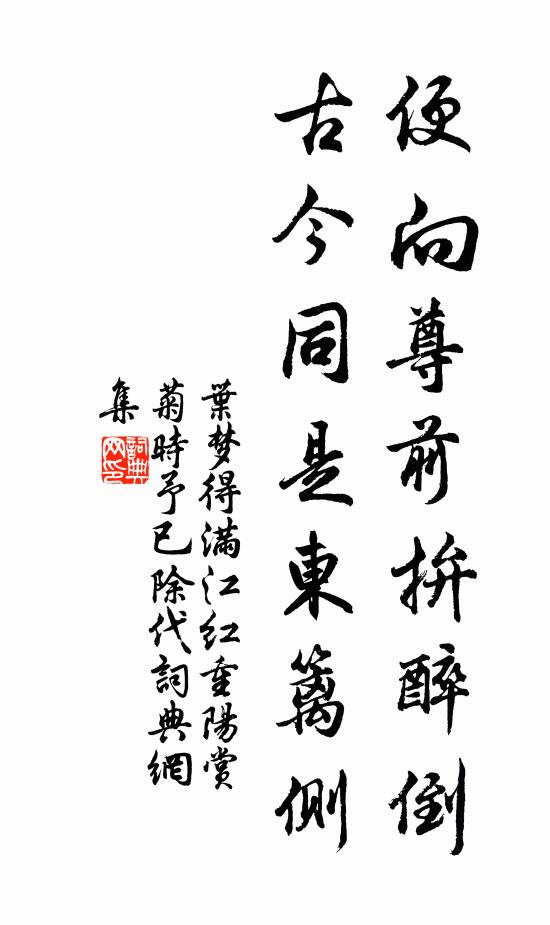 便向尊前拚醉倒
古今同是東籬側
葉梦得滿江红重陽赏
菊時予已除代詞典網
集
詞典网印